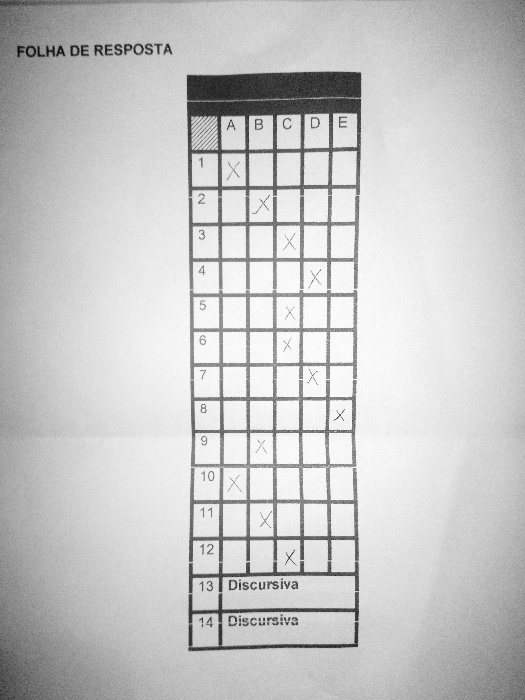 FOLHA DE RESPOSTA
A B C D E
1 X
2 X
3 X
4 X
5 X
6 X
7 X
8 X
9 X
10 X
11 X
12 X
13 Discursiva
14 Discursiva